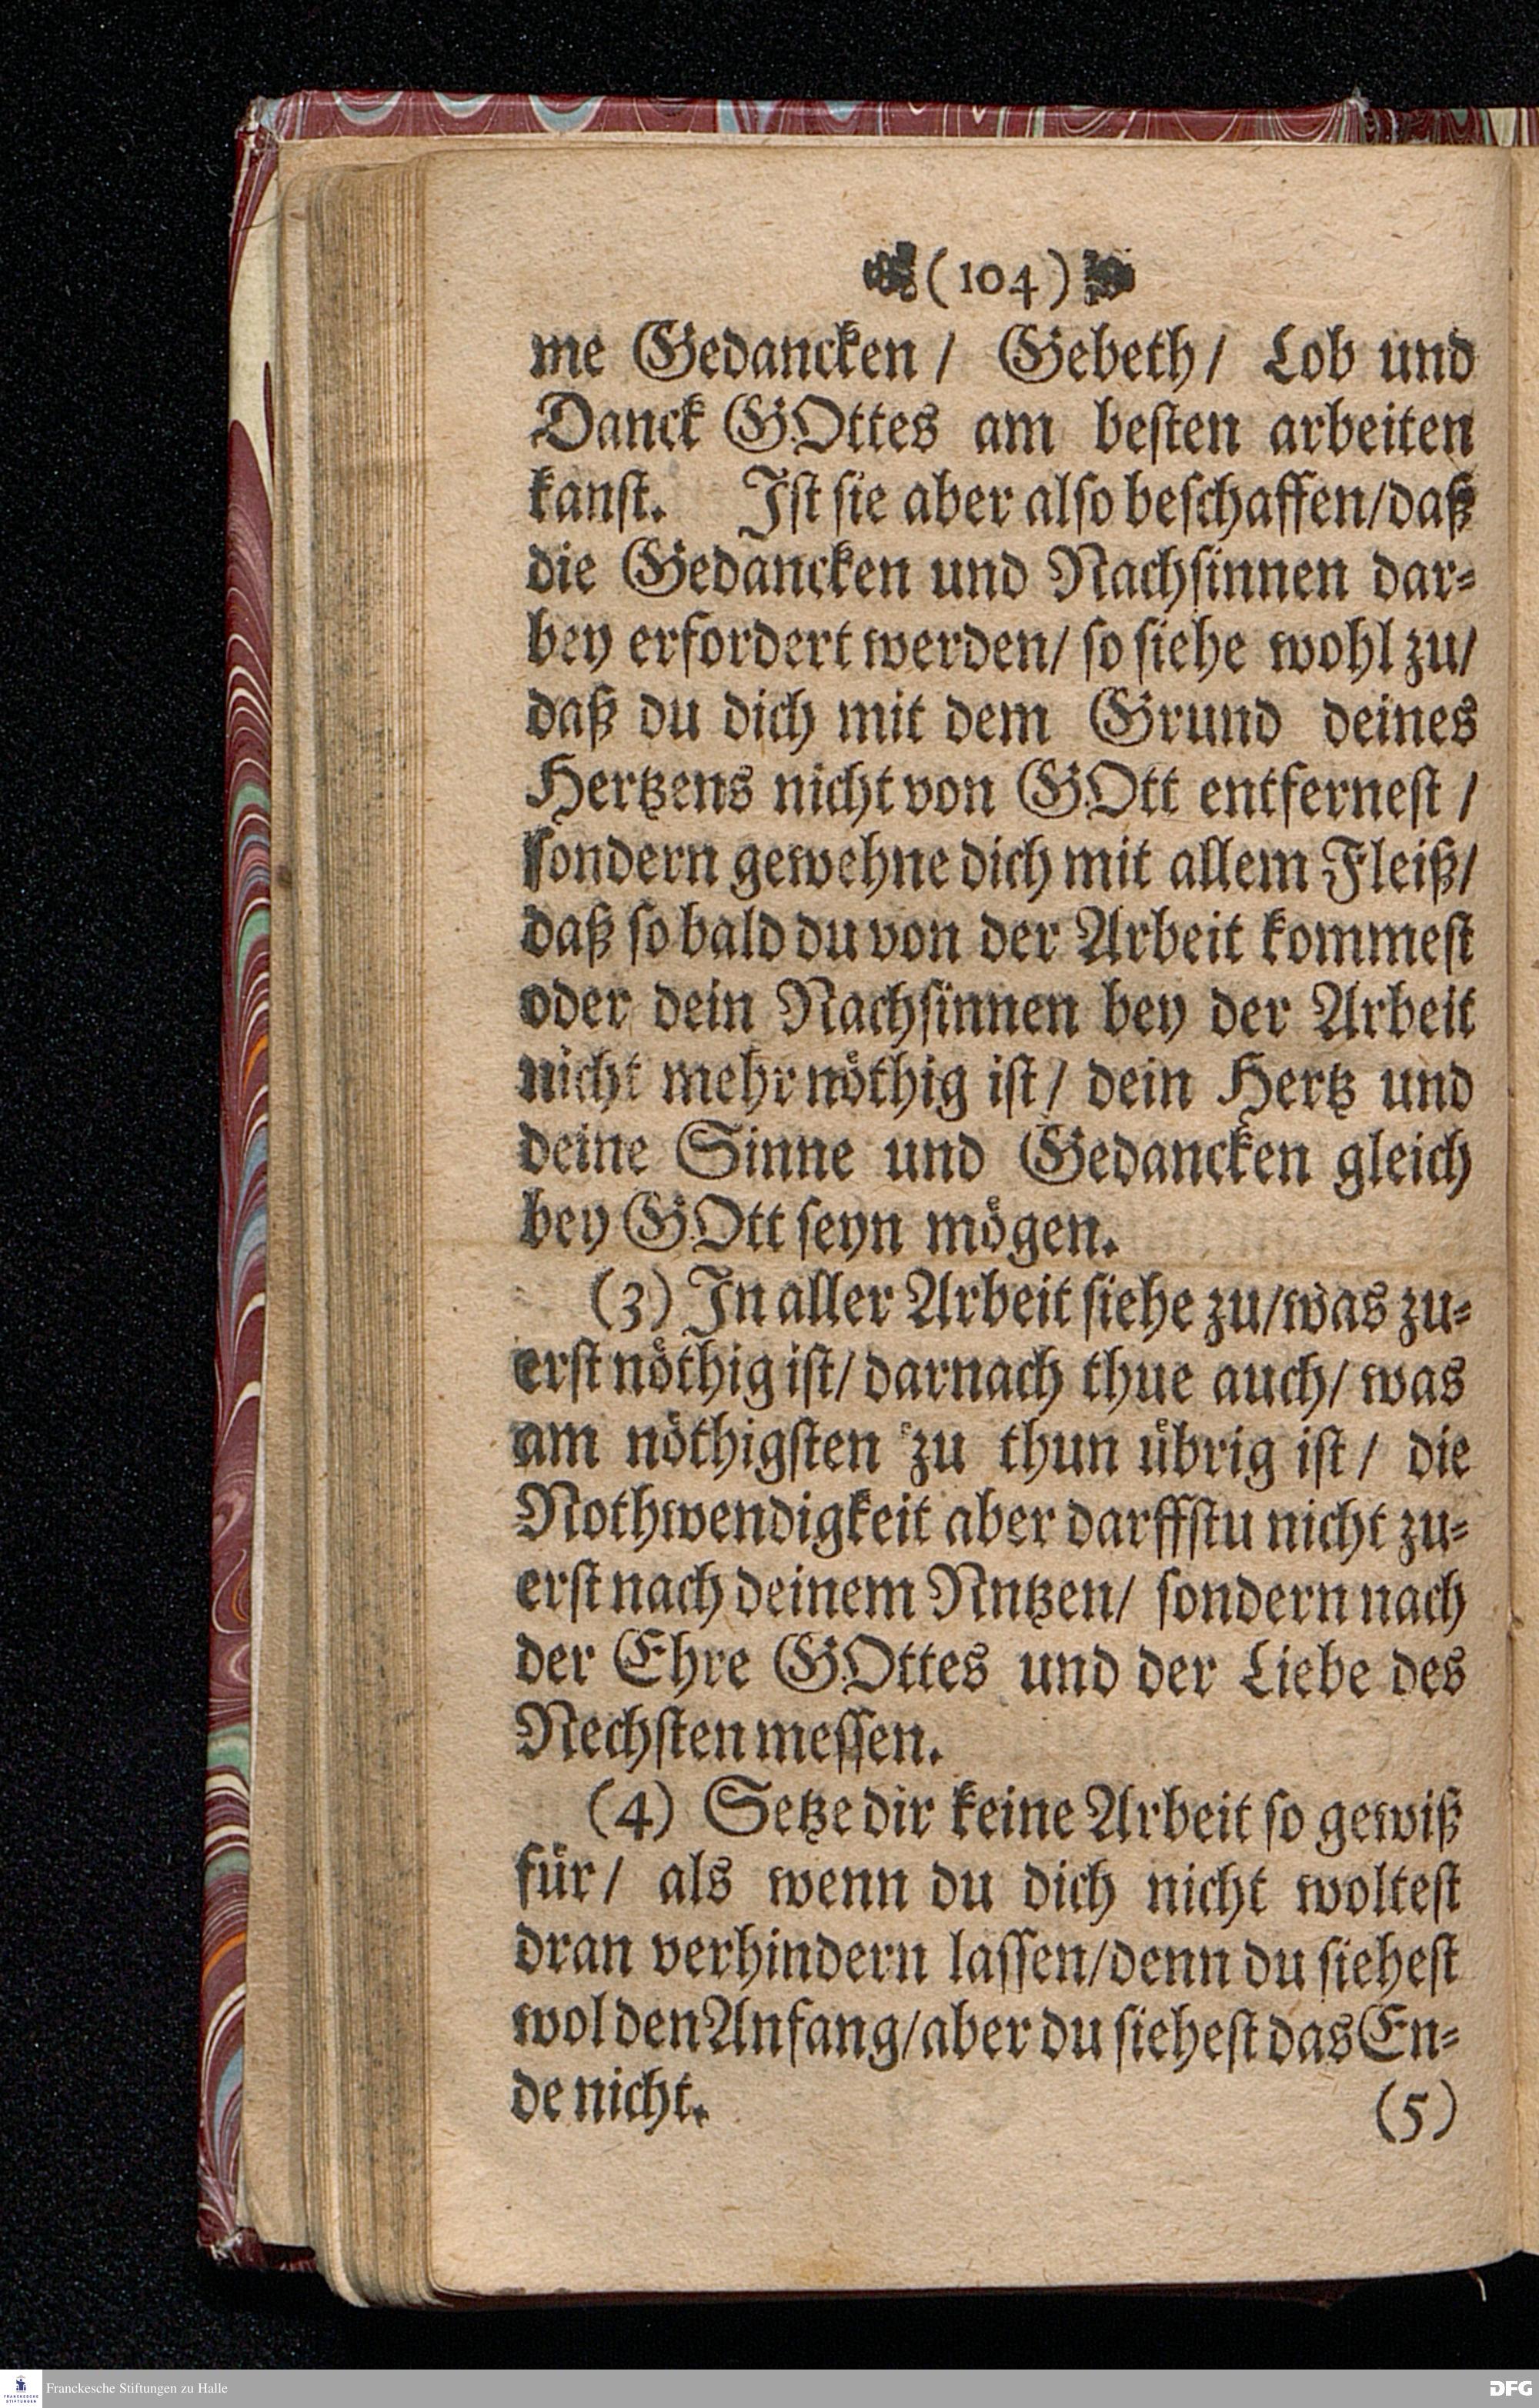 (104)
me Gedancken / Gebeth / Lob und
Danck GOttes am besten arbeiten
kanst. Ist sie aber also beschaffen / daß
die Gedancken und Nachsinnen dar-
bey erfordert werden / so siehe wohl zu /
daß du dich mit dem Grund deines
Hertzens nicht von GOtt entfernest /
sondern gewehne dich mit allem Fleiß /
daß so bald du von der Arbeit kommest
oder dein Nachsinnen bey der Arbeit
nicht mehr nöthig ist / dein Hertz und
deine Sinne und Gedancken gleich
bey GOtt seyn mögen.
(3) In aller Arbeit siehe zu / was zu-
erst nöthig ist / darnach thue auch / was
am nöthigsten zu thun übrig ist / die
Nothwendigkeit aber darffstu nicht zu-
erst nach deinem Nntzen / sondern nach
der Ehre GOttes und der Liebe des
Nechsten messen.
(4) Setze dir keine Arbeit so gewiß
für / als wenn du dich nicht woltest
dran verhindern lassen / denn du siehest
wol den Anfang / aber du siehest das En-
de nicht. (5)
Franckesche Stiftungen zu Halle
DFG